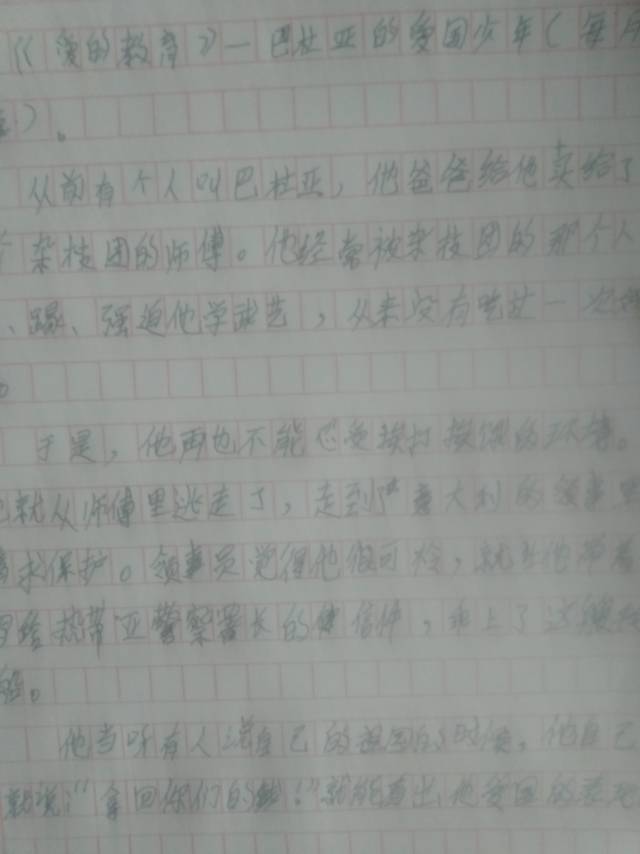 《爱的教育》—巴杜亚的爱国少年(每
)。
从前有个人叫巴杜亚，他爸爸给他卖给了
杂技团的师傅。他经常被杂技团的那个人
、踢、强迫他学 ，从来没有吃过一次
。
于是，他再也不能忍受挨打挨饿的 。
就从师傅里逃走了，走到 意大利的领事
求保护。领事员觉得他很可怜，就 他带着
热 亚警察署长的 信件，乘上了这艘
船。
他当听有人 自己的祖国的时候，他自己
就说："拿回你们的钱！"就能看出他爱国的表现